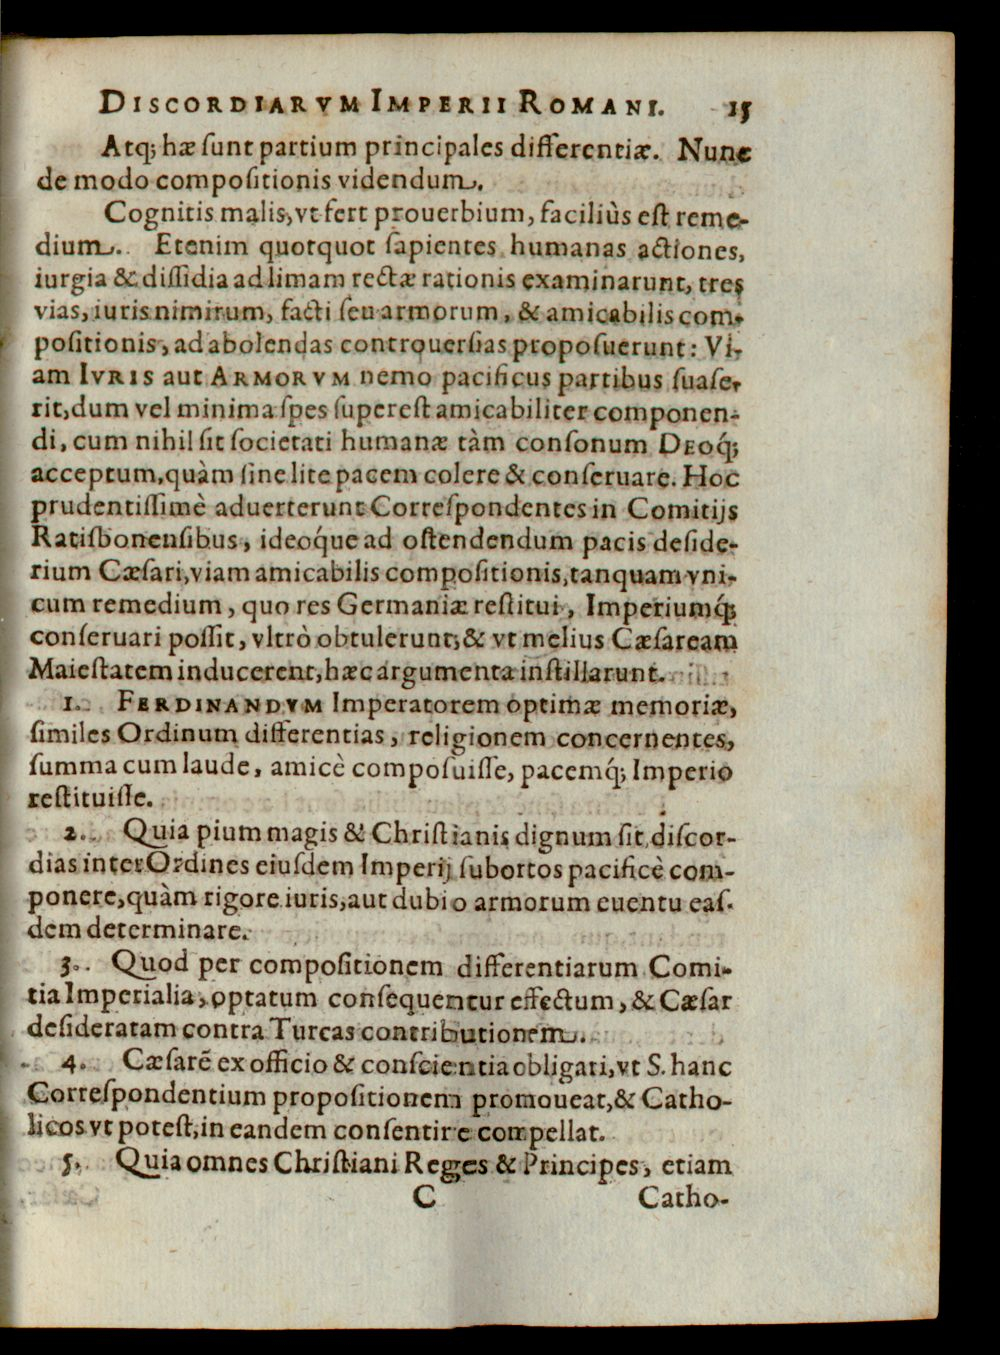 DISCORDIARVM IMPERII ROMANI. 15
Atq; hæ ſunt partium principales differentiæ. Nunc
de modo compoſitionis videndum.
Cognitis malis, vt fert prouerbium, faciliùs eſt reme-
dium. Etenim quotquot ſapientes humanas actiones,
iurgia & diſſidia ad limam rectæ rationis examinarunt, tres
vias, iuris nimirum, facti ſeu armorum, & amicabilis com-
poſitionis, ad abolendas controuerſias propoſuerunt: Vi-
am IVRIS aut ARMORVM nemo pacificus partibus ſuaſe-
rit, dum vel minima ſpes ſupereſt amicabiliter componen-
di, cum nihil ſit ſocietati humanæ tàm conſonum DEOq́;
acceptum, quàm ſine lite pacem colere & conſeruare. Hoc
prudentiſſimè aduerterunt Correſpondentes in Comitijs
Ratiſbonenſibus, ideoq́ue ad oſtendendum pacis deſide-
rium Cæſari, viam amicabilis compoſitionis, tanquam vni-
cum remedium, quo res Germaniæ reſtitui, Imperiumq́;
conſeruari poſſit, vltrò obtulerunt, & vt melius Cæſaream
Maieſtatem inducerent, hæc argumenta inſtillarunt.
1. FERDINANDVM Imperatorem optimæ memoriæ,
ſimiles Ordinum differentias, religionem concernentes,
ſumma cum laude, amicè compoſuiſſe, pacemq́; Imperio
reſtituiſſe.
2. Quia pium magis & Chriſtianis dignum ſit, diſcor-
dias inter Ordines eiuſdem Imperij ſubortos pacificè com-
ponere, quàm rigore iuris, aut dubio armorum euentu eaſ-
dem determinare.
3. Quod per compoſitionem differentiarum Comi-
tia Imperialia, optatum conſequentur effectum, & Cæſar
deſideratam contra Turcas contributionem.
4. Cæſarē ex officio & conſcientia obligari, vt S. hanc
Correſpondentium propoſitionem promoueat, & Catho-
licos vt poteſt, in eandem conſentire compellat.
5. Quia omnes Chriſtiani Reges & Principes, etiam
C Catho-